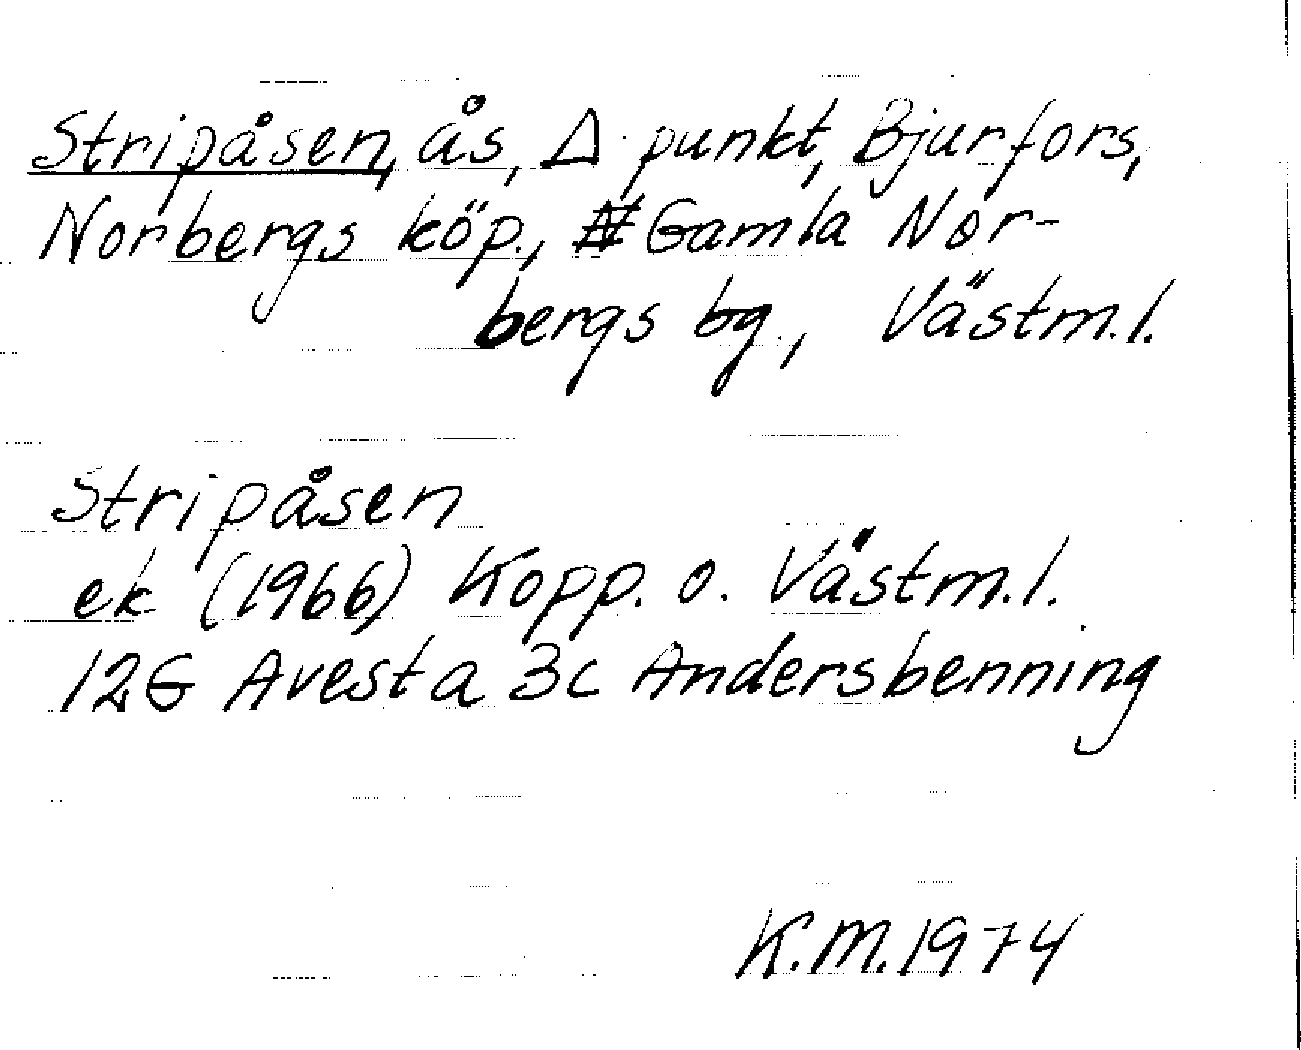 Stripåsen, ås, Δ punkt, Bjurfors,
Norbergs köp., Gamla Nor-
bergs bg., Västm.l.
Stripåsen
ek (1966) Kopp. o. Västm.l.
12G Avesta 3c Andersbenning
K.M.1974